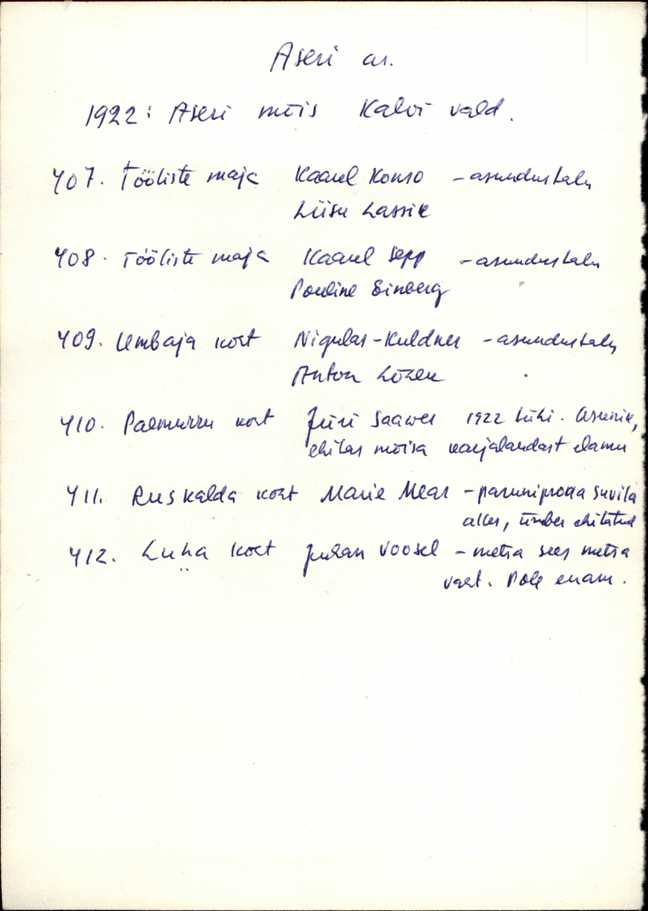 Aseri as.
1922: Aseri mõis Kalvi vald.
407. Tööliste maja Kaarel Konso - asundustalu
Liisu Lassik
408. Tööliste maja Kaarel Sepp - asundustalu
Pauline Einberg
409. Umbaja kort Nigulas-Kuldner - asundustalu
Anton
410. kort Jüri Saawer 1922 tühi. Asunik,
ehitas mõisa karjalaudast elamu
411. Ruskalda kort Marie Mear - paruniproua suvila
alles, ümber ehitatud
412. Luha kort Juhan Voosel - metsa sees metsa
vaht. Pole enam.